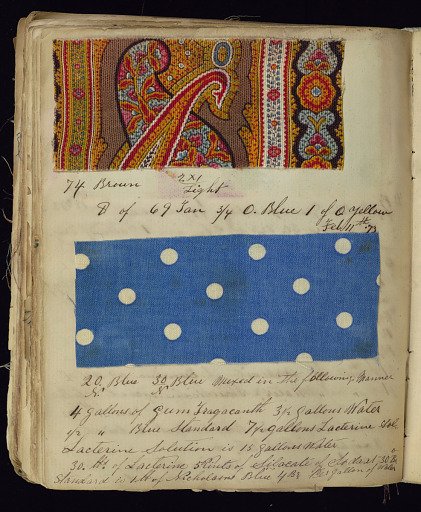 74 Brown 2 x 1
Light
8 of 69 Tan 3/4 O. Blue 1 of O Yellow
Feb 11th 73
20 Blue 30 Blue Mixed in the following Manner
4 gallons of Gum Tragacanth 3½ gallons Water
½ " Blue Standard 7½ gallons Lacterine Sol.
Lacterine Solution is 15 gallons Water
30 lbs of Lacterine of Silocate of Soda at 30
Standard is 1 lb of Nicholsons Blue 4 per gallon of Water